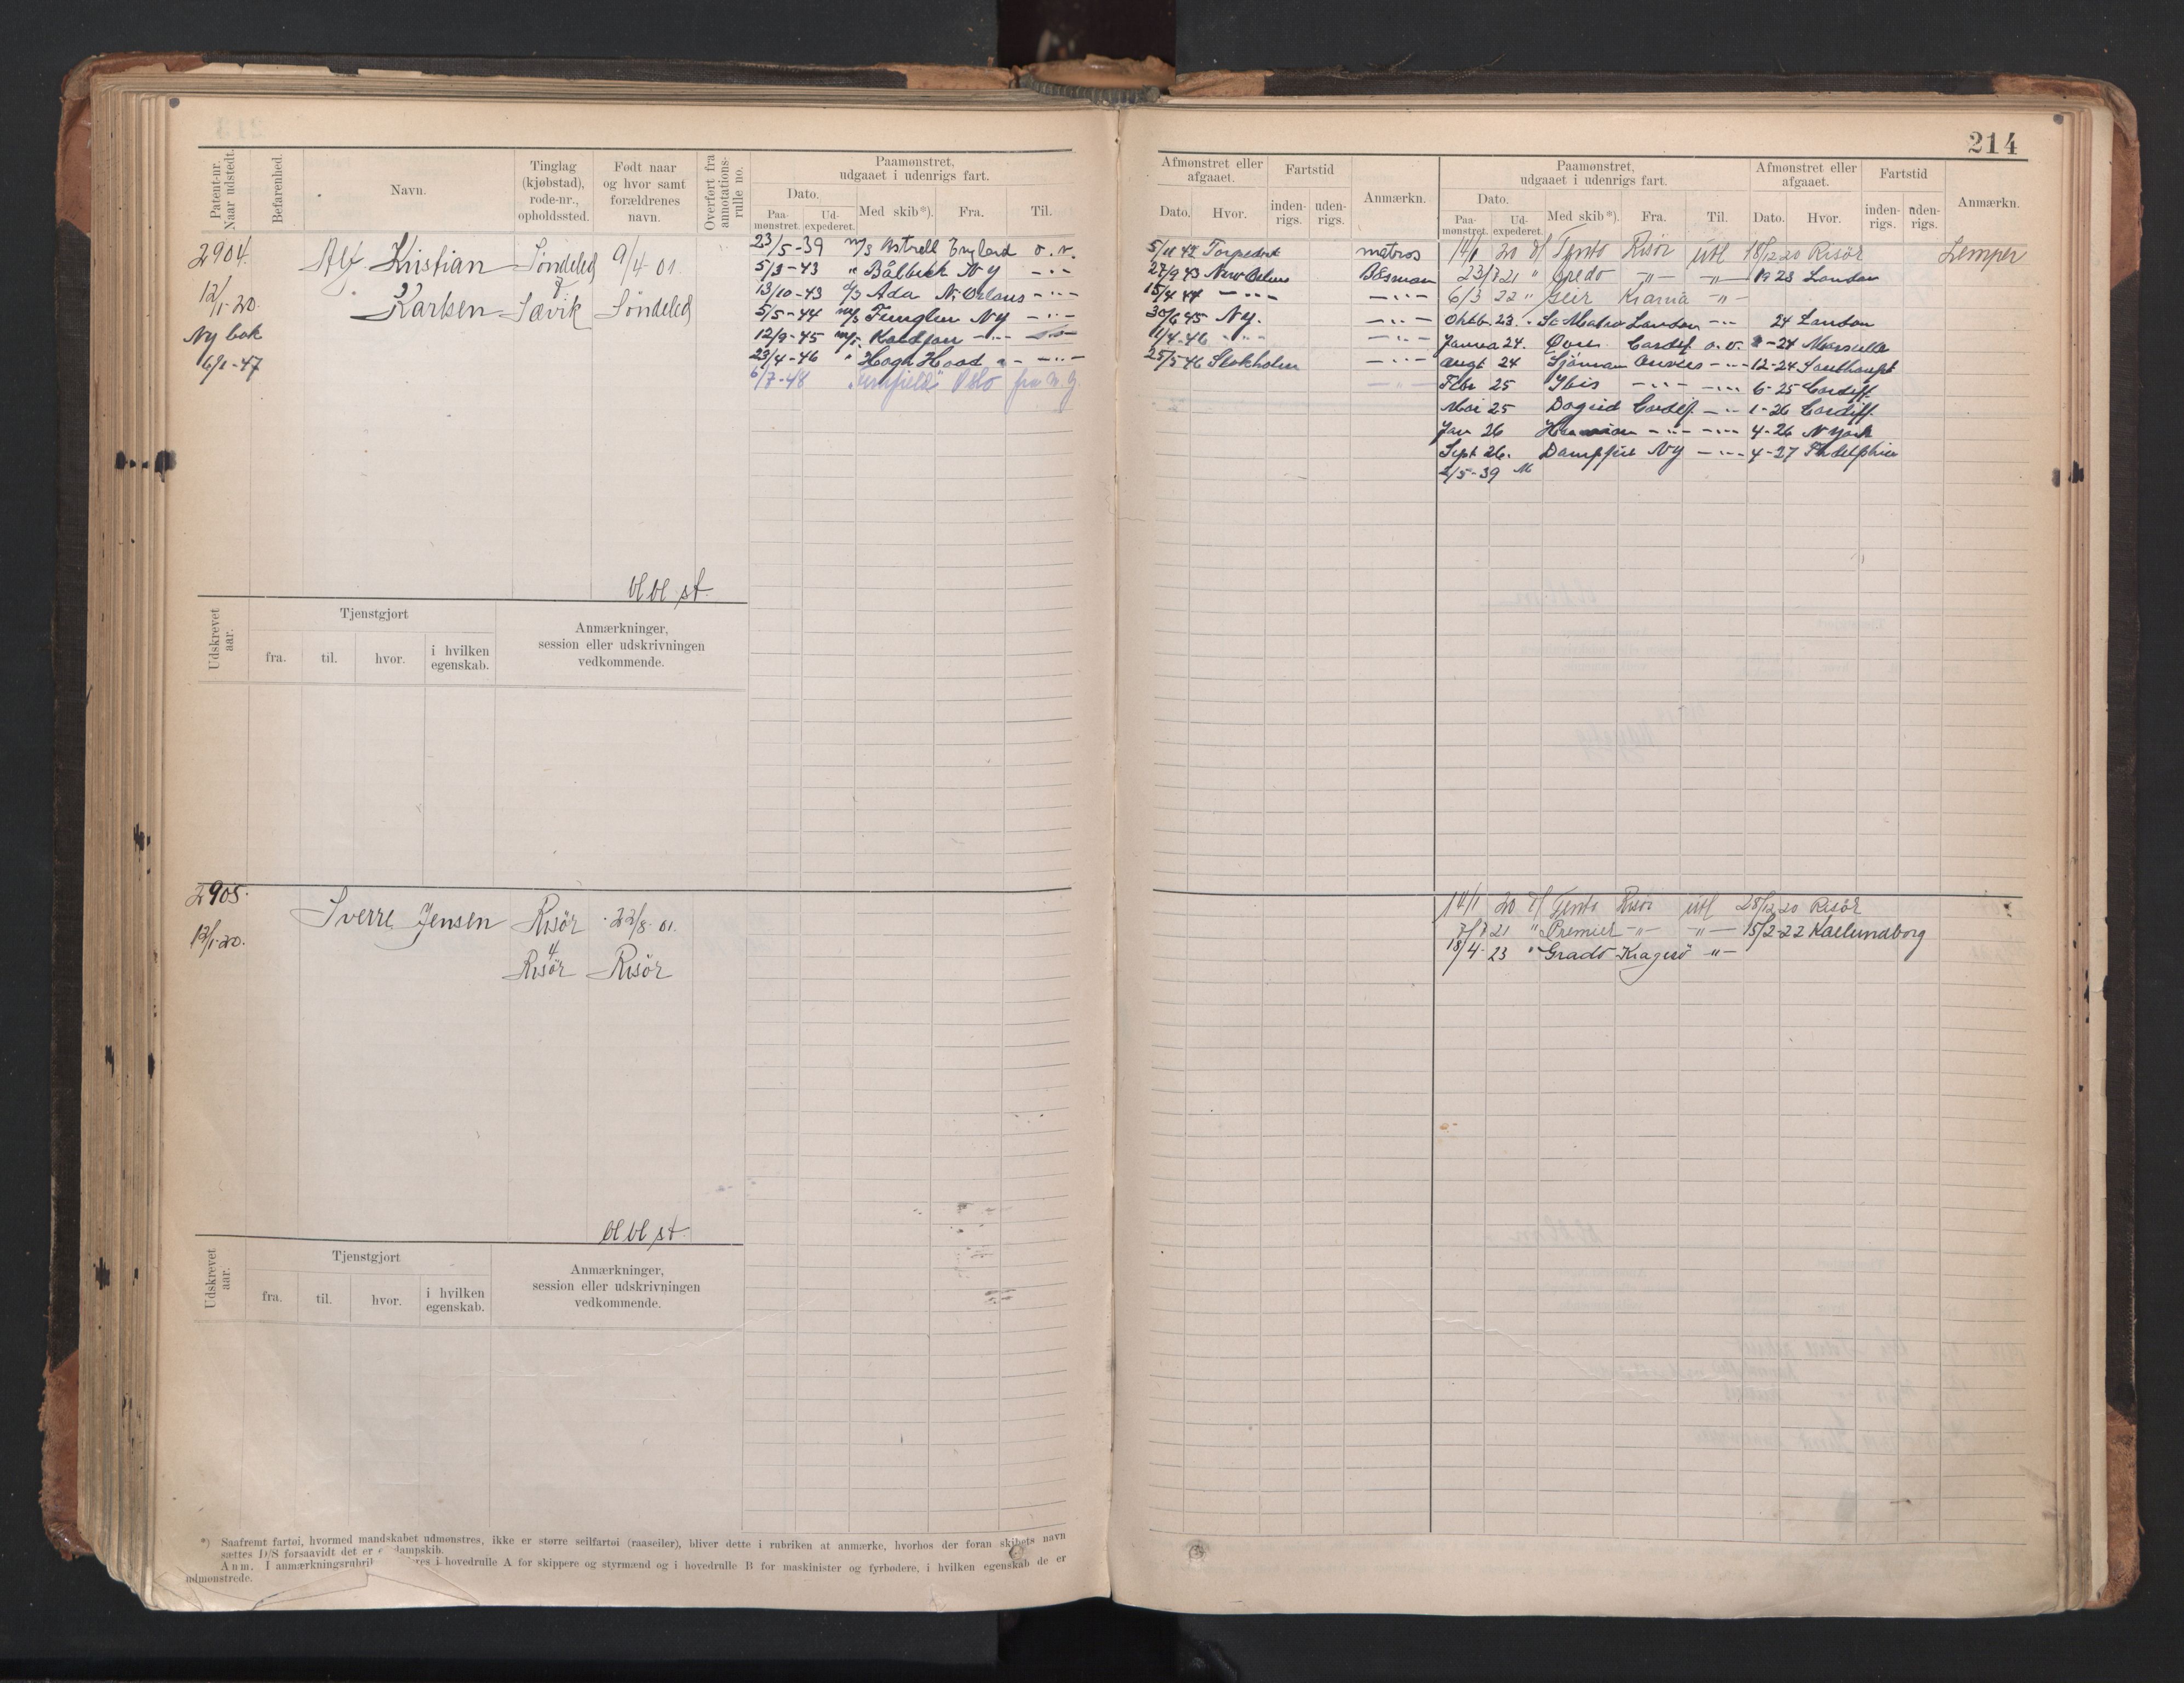 214
Patent-nr. Naar udstedt.
Befarenhed.
Navn.
Tinglag (kjøbstad), rode-nr., opholdssted.
Født naar og hvor samt forældrenes navn.
Overført fra annotations-rulle no.
Paamønstret, udgaaet i udenrigs fart.
Dato.
Paa-mønstret.
Ud-expederet.
Med skib*).
Fra.
Til.
Afmønstret eller afgaaet.
Dato.
Hvor.
Fartstid
inden-rigs.
uden-rigs.
Anmærkn.
Paamønstret, udgaaet i udenrigs fart.
Dato.
Paa-mønstret.
Ud-expederet.
Med skib*).
Fra.
Til.
Afmønstret eller afgaaet.
Dato.
Hvor.
Fartstid
inden-rigs.
uden-rigs.
Anmærkn.
2904.
12/1-20.
Ny bok
6/1-47
Alf Kristian
Karlsen
Søndeled
Sævik
9/4 01.
Søndeled
23/5-39 m/s Astrell England o. v.
5/3-43 " Bålbek NY -"-
13/10-43 d/s Ada N. Orleans -"-
5/5-44 m/s Fernglen NY -"-
12/9-45 m/s. -"-
23/4-46 " Høgh Hood " -"-
6/7-48 "Fernfield" Oslo fra N.Y.
5/11 42 Torpedert matros
27/9 43 New Orleans Båsman
15/4 44 -"- -"-
30/6 45 NY. -"-
11/4-46 -"- -"-
25/5-46 Stokholm -"-
14/1 20 d/s Tento Risör utl 18/12 20 Risör Lemper
23/7 21 " Gredo -"- -"- 19 23 London
6/3 22 " Geir Kr.ania -"-
Oktb. 23. " London -"- 24 London
Janua 24. Cardif o. v. 8-24 Marseille
Augt 24 Sjöman -"- 12-24 Southampt
Febr 25 Ibis -"- -"- 6-25 Cardiff
Mai 25 Dagrid Cardif -"- 1-26 Cardiff.
Jan 26 -"- -"- 4-26 N York
Sept 26. NY -"- 4-27
2/5-39 M
bl bl. st.
Udskrevet aar.
Tjenstgjort
fra.
til.
hvor.
i hvilken egenskab.
Anmærkninger, session eller udskrivningen vedkommende.
2905.
12/1-20.
Sverre Jensen
Risör
4
Risör
22/8-01.
Risör
14/1 20 d/s Tento Risör utl 28/12 20 Risör
7/7 21 " Premier -"- -"- 15/2-22 Kallundborg
18/4-23 " Grado Kragerö -"-
bl bl st.
Udskrevet aar.
Tjenstgjort
fra.
til.
hvor.
i hvilken egenskab.
Anmærkninger, session eller udskrivningen vedkommende.
*) Saafremt fartøi, hvormed mandskabet udmønstres, ikke er større seilfartøi (raaseiler), bliver dette i rubriken at anmærke, hvorhos der foran skibets navn
sættes D/S forsaavidt det er dampskib.
Anm. I anmærkningsrubrik i hovedrulle A for skippere og styrmænd og i hovedrulle B for maskinister og fyrbødere, i hvilken egenskab de er
udmønstrede.